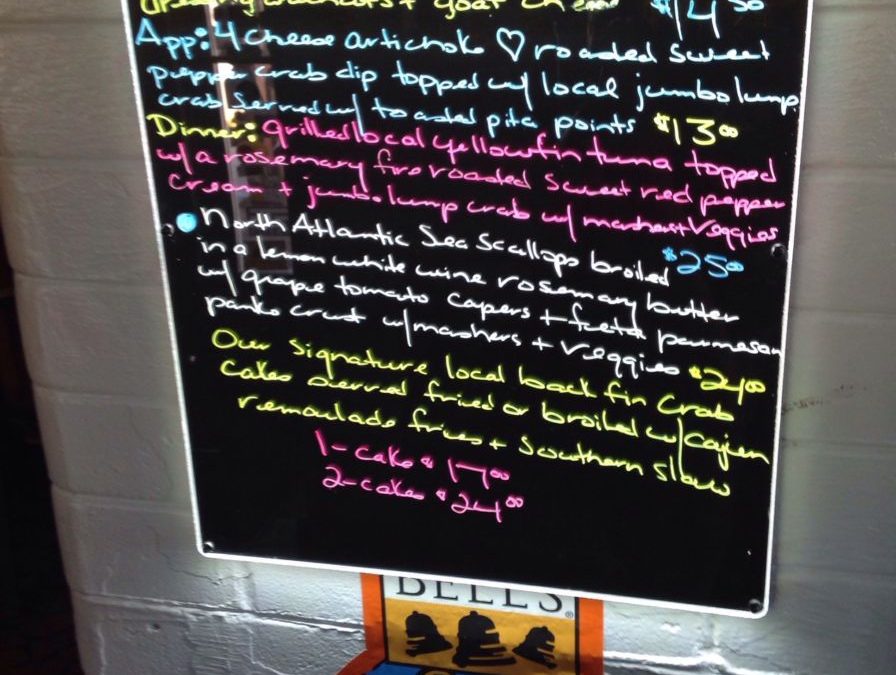 walnuts + goat cheese $14.50
App: 4 cheese artichoke ♡ roasted sweet
pepper crab dip topped w/ local jumbo lump
crab served w/ toasted pita points $13.00
Dinner: grilled local yellowfin tuna topped
w/ a rosemary fire roasted sweet red pepper
cream + jumbo lump crab w/ mashers + veggies
$25.00
North Atlantic Sea Scallops broiled
in a lemon white wine rosemary butter
w/ grape tomato capers + feta parmesan
panko crust w/ mashers + veggies $24.00
Our signature local back fin crab
cakes served fried or broiled w/ cajun
remoulade fries + Southern slaw
1-cake $17.00
2-cakes $24.00
BELL'S